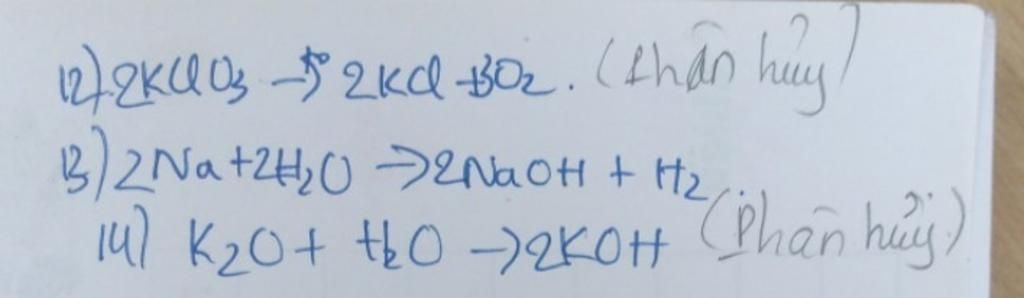 12) 2KClO3 →t° 2KCl + 3O2. (Phân hủy)
13) 2Na + 2H2O → 2NaOH + H2
14) K2O + H2O → 2KOH (Phân hủy)